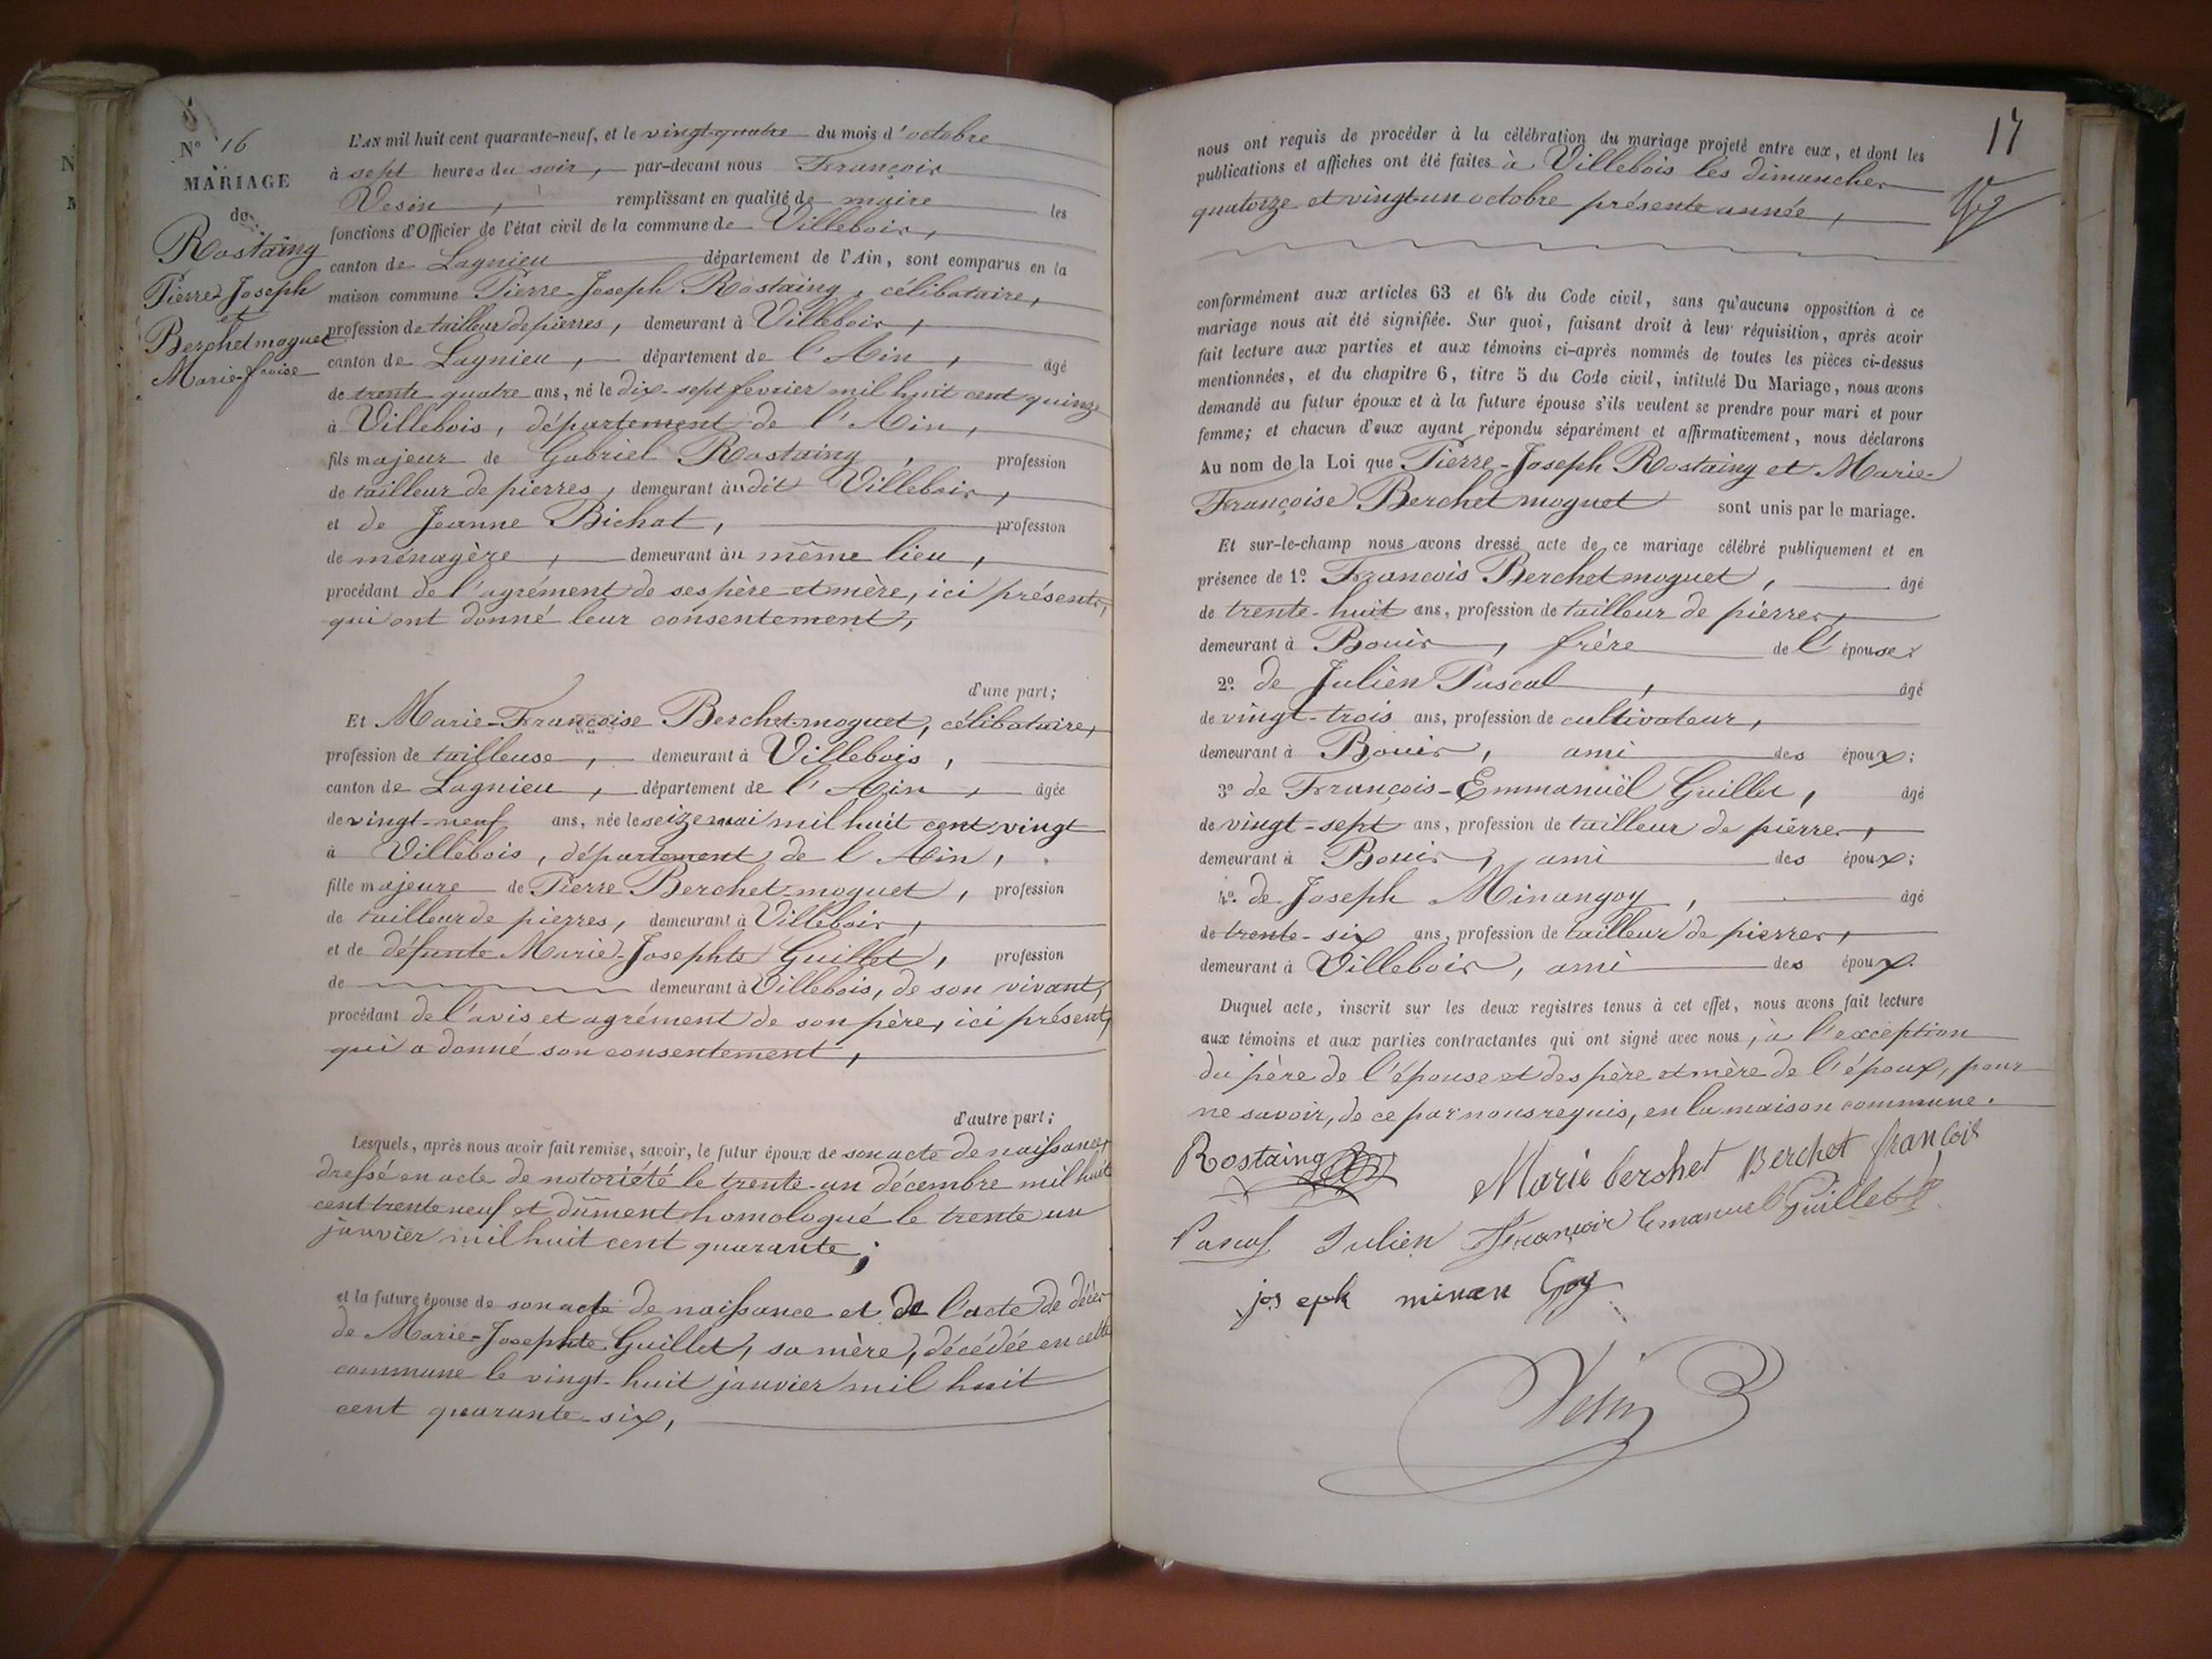 N° 16
MARIAGE
de
Rostaing
Pierre Joseph
et
Berchet moguet
Marie fcoise
L'AN mil huit cent quarante-neuf, et le vingt-quatre du mois d'octobre
à sept heures du soir, par-devant nous François
Vesin, remplissant en qualité de maire les
fonctions d'Officier de l'état civil de la commune de Villebois,
canton de Lagnieu département de l'Ain, sont comparus en la
maison commune Pierre-Joseph Rostaing, célibataire,
profession de tailleur de pierres, demeurant à Villebois,
canton de Lagnieu, département de l'Ain, âgé
de trente quatre ans, né le dix-sept fevrier mil huit cent quinze
à Villebois, département de l'Ain,
fils majeur de Gabriel Rostaing, profession
de tailleur de pierres, demeurant audit Villebois,
et de Jeanne Bichat, profession
de menagère, demeurant au même lieu,
procédant de l'agrément de ses père et mère, ici présents,
qui ont donné leur consentement,
d'une part;
Et Marie-Françoise Berchet-moguet, célibataire,
profession de tailleuse, demeurant à Villebois,
canton de Lagnieu, département de l'Ain, âgée
de vingt-neuf ans, née le seize mai mil huit cent vingt
à Villebois, département de l'Ain,
fille majeure de Pierre Berchet-moguet, profession
de tailleur de pierres, demeurant à Villebois,
et de défunte Marie-Josephte Guillet, profession
de demeurant à Villebois, de son vivant,
procédant de l'avis et agrément de son père, ici présent,
qui a donné son consentement,
d'autre part;
Lesquels, après nous avoir fait remise, savoir, le futur époux de son acte de naissance,
dressé en acte de notoriété le trente-un décembre mil huit
cent trente neuf et dûment homologué le trente un
janvier mil huit cent quarante;
et la future épouse de son acte de naissance et de l'acte de décès
de Marie-Josephte Guillet, sa mère, décédée en cette
commune le vingt-huit janvier mil huit
cent quarante-six,
17
nous ont requis de procéder à la célébration du mariage projeté entre eux, et dont les
publications et affiches ont été faites à Villebois les dimanches
quatorze et vingt-un octobre présente année,
conformément aux articles 63 et 64 du Code civil, sans qu'aucune opposition à ce
mariage nous ait été signifiée. Sur quoi, faisant droit à leur réquisition, après avoir
fait lecture aux parties et aux témoins ci-après nommés de toutes les pièces ci-dessus
mentionnées, et du chapitre 6, titre 5 du Code civil, intitulé Du Mariage, nous avons
demandé au futur époux et à la future épouse s'ils veulent se prendre pour mari et pour
femme; et chacun d'eux ayant répondu séparément et affirmativement, nous déclarons
Au nom de la Loi que Pierre-Joseph Rostaing et Marie-
Françoise Berchet moguet sont unis par le mariage.
Et sur-le-champ nous avons dressé acte de ce mariage célébré publiquement et en
présence de 1° François Berchet moguet, âgé
de trente-huit ans, profession de tailleur de pierres,
demeurant à Bouis, frère de l'épouse;
2° de Julien Pascal, âgé
de vingt-trois ans, profession de cultivateur,
demeurant à Bouis, ami des époux;
3° de François-Emmanuël Guillet, âgé
de vingt-sept ans, profession de tailleur de pierres,
demeurant à Bouis, ami des époux;
4° de Joseph Minangoy, âgé
de trente-six ans, profession de tailleur de pierres,
demeurant à Villebois, ami des époux.
Duquel acte, inscrit sur les deux registres tenus à cet effet, nous avons fait lecture
aux témoins et aux parties contractantes qui ont signé avec nous, à l'exception
du père de l'épouse et des père et mère de l'époux, pour
ne savoir, de ce par nous requis, en la maison commune.
Rostaing Marie berchet Berchet françois
Pascal Julien François Emanuel Guillet
joseph minan Goy
Vesin